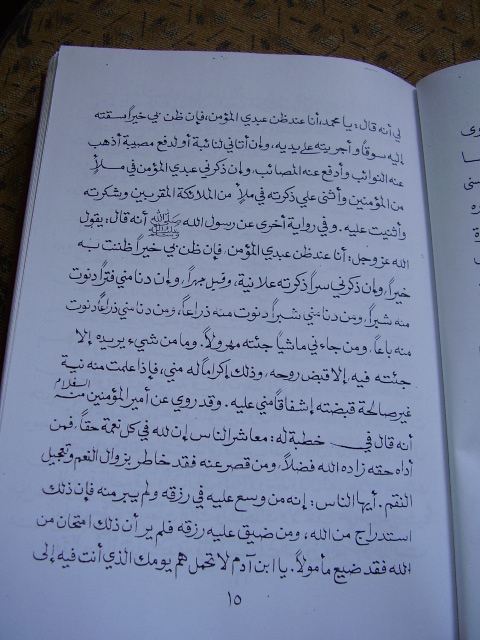 لي أنه قال: يا محمد، أنا عند ظن عبدي المؤمن، فإن ظن بي خيراً سقته
إليه سوقاً وأجريته على يديه، وإن أتاني لنائبة أو لدفع مصيبة أذهب
عنه النوائب وأدفع عنه المصائب، وإن ذكرني عبدي المؤمن في ملأ
من المؤمنين وأثنى علي ذكرته في ملأ من الملائكة المقربين وشكرته
وأثنيت عليه. وفي رواية أخرى عن رسول الله ﷺ أنه قال: يقول
الله عز وجل: أنا عند ظن عبدي المؤمن، فإن ظن بي خيراً ظننت به
خيراً، وإن ذكرني سراً ذكرته علانية، وقيل جهراً، وإن دنا مني فتراً دنوت
منه شبراً، ومن دنا مني شبراً دنوت منه ذراعاً، ومن دنا مني ذراعاً دنوت
منه باعاً. ومن جاءني ماشياً جئته مهرولاً. وما من شيء يريده إلا
جئته فيه، إلا قبض روحه، وذلك إكراماً له مني، فإذا علمت منه نية
غير صالحة قبضته إشفاقاً مني عليه. وقد روي عن أمير المؤمنين منه السلام
أنه قال في خطبة له: معاشر الناس إن لله في كل نعمة حقاً، فمن
أداه حقه زاده الله فضلاً، ومن قصر عنه فقد خاطر بزوال النعم وتعجيل
النقم. أيها الناس: إنه من وسع عليه في رزقه ولم يبر منه فإن ذلك
استدراج من الله، ومن ضيق عليه رزقه فلم ير أن ذلك امتحان من
الله فقد ضيع مأمولاً. يا ابن آدم لا تحمل هم يومك الذي أنت فيه إلى
١٥